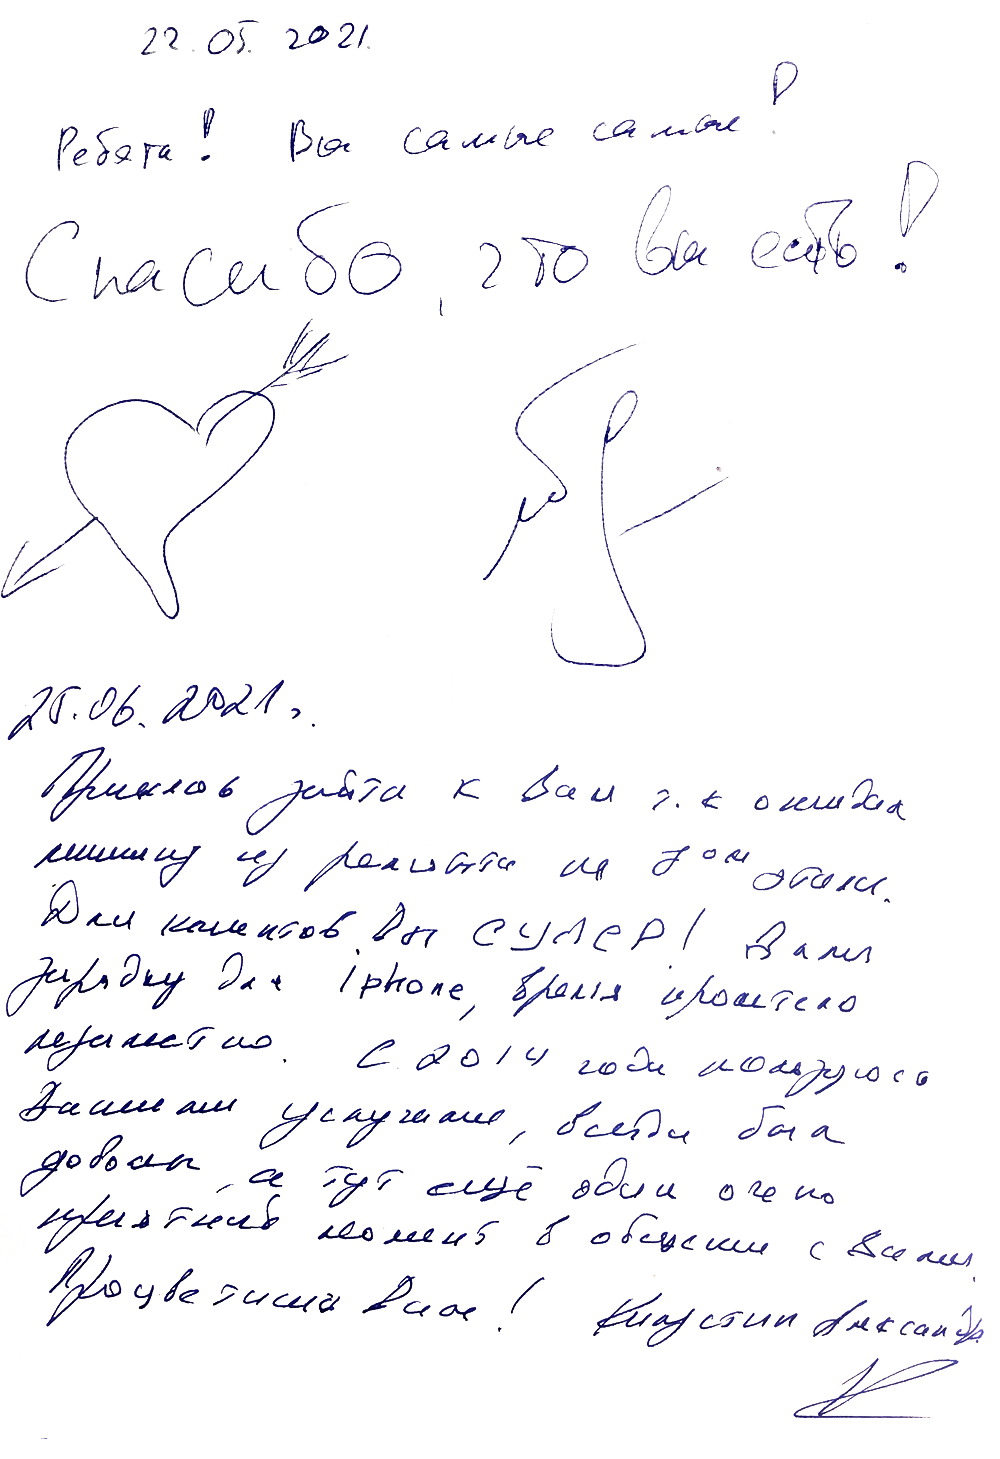 22.05.2021.
Ребята! Вы самые самые!
Спасибо, что вы есть!
25.06.2021г.
Пришлось зайти к Вам т.к ожидал
машину из ремонта на 3ом этаже.
Для клиентов Вы СУПЕР! Дали
зарядку для iphone, время пролетело
незаметно. С 2014 года пользуюсь
Вашими услугами, всегда был
доволен, а тут ещё один очень
приятный момент в общении с Вами.
Процветания Вам! Александр